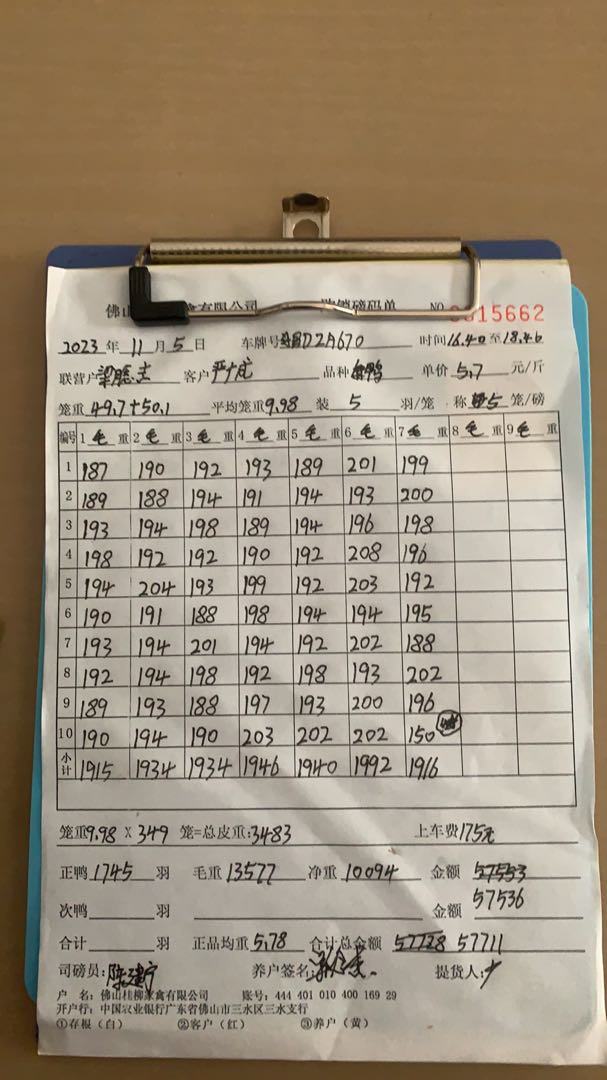 佛山 禽有限公司 购销磅码单 NO 0015662
2023 年 11 月 5 日 车牌号 D2A670 时间16.40至18.46
联营户 梁 志 客户 品种 鸭 单价 5.7 元/斤
笼重 49.7+50.1 平均笼重 9.98 装 5 羽/笼 称 5 笼/磅
编号 1 毛 重 2 毛 重 3 毛 重 4 毛 重 5 毛 重 6 毛 重 7 毛 重 8 毛 重 9 毛 重
1 187 190 192 193 189 201 199
2 189 188 194 191 194 193 200
3 193 194 198 189 194 196 198
4 198 192 192 190 192 208 196
5 194 204 193 199 192 203 192
6 190 191 188 198 194 194 195
7 193 194 201 194 192 202 188
8 192 194 198 192 198 193 202
9 189 193 188 197 193 200 196
10 190 194 190 203 202 202 150
小计 1915 1934 1934 1946 1940 1992 1916
笼重9.98 X 349 笼=总皮重:3483 上车费175元
正鸭 1745 羽 毛重 13577 净重 10094 金额 57533
57536
次鸭 羽 金额
合计 羽 正品均重 5.78 合计总金额 57728 57711
司磅员: 陈建宁 养户签名: 提货人:
户 名: 佛山桂柳家禽有限公司 账号: 444 401 010 400 169 29
开户行: 中国农业银行广东省佛山市三水区三水支行
①存根(白) ②客户(红) ③养户(黄)